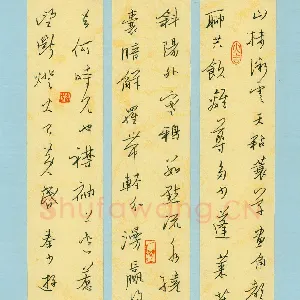 山抹微雲天粘衰草畫角聲
聊共飲離尊多少蓬萊
斜陽外寒鴉萬點流水繞
囊暗解羅帶輕分漫贏得
去何時見也襟袖上空惹
望斷燈火已黃昏 秦少游
shufawang.CN